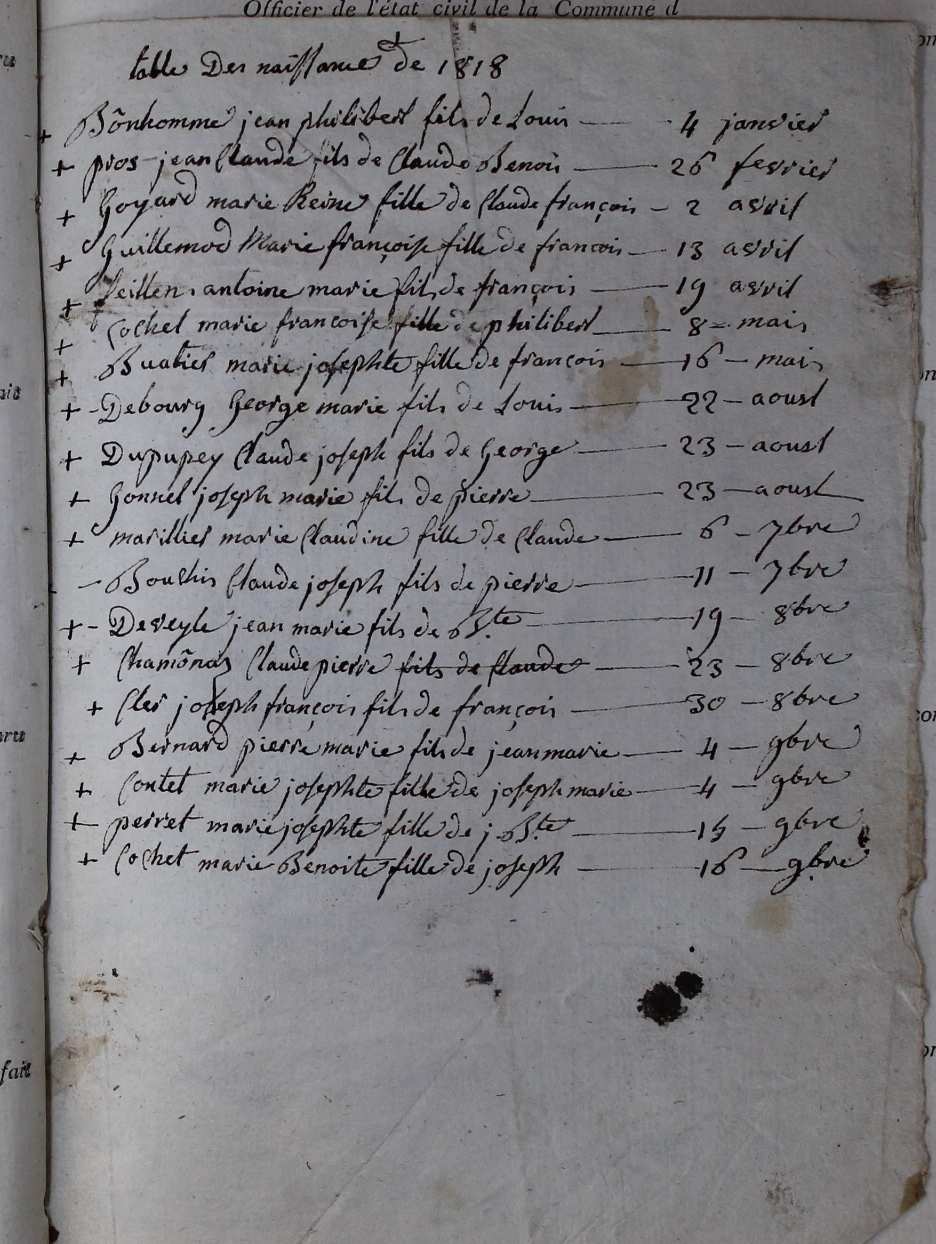 Officier de l'état civil de la Commune d
table Des naissance de 1818
+ Bônhomme jean philibert fils de Louis — 4 janvier
+ pros jean Claude fils de Claude Benoit — 26 fevrier
+ Goyard marie Reine fille de Claude françois — 2 avril
+ Guillemod Marie françoise fille de francois — 13 avril
+ antoine marie fils de françois — 19 avril
+ Cochet marie francoise fille de philibert — 8 — mais
+ Buatier marie josephte fille de françois — 16 — mais
+ - Debourg George marie fils de Louis — 22 — aoust
+ Dupupey Claude joseph fils de George — 23 — aoust
+ Gonnet joseph marie fils de pierre — 23 — aoust
+ marillier marie Claudine fille de Claude — 6 — 7bre
- Bouchis Claude joseph fils de pierre — 11 — 7bre
+ - Deveyle jean marie fils de Bte — 19 — 8bre
+ Chamônaz Claude pierre fils de Claude — 23 — 8bre
+ Cler joseph françois fils de françois — 30 — 8bre
+ Bernard pierre marie fils de jean marie — 4 — 9bre
+ Contet marie josephte fille de joseph marie — 4 — 9bre
+ perret marie josephte fille de j Bte — 15 — 9bre
+ Cochet marie Benoite fille de joseph — 16 — 9bre
fait